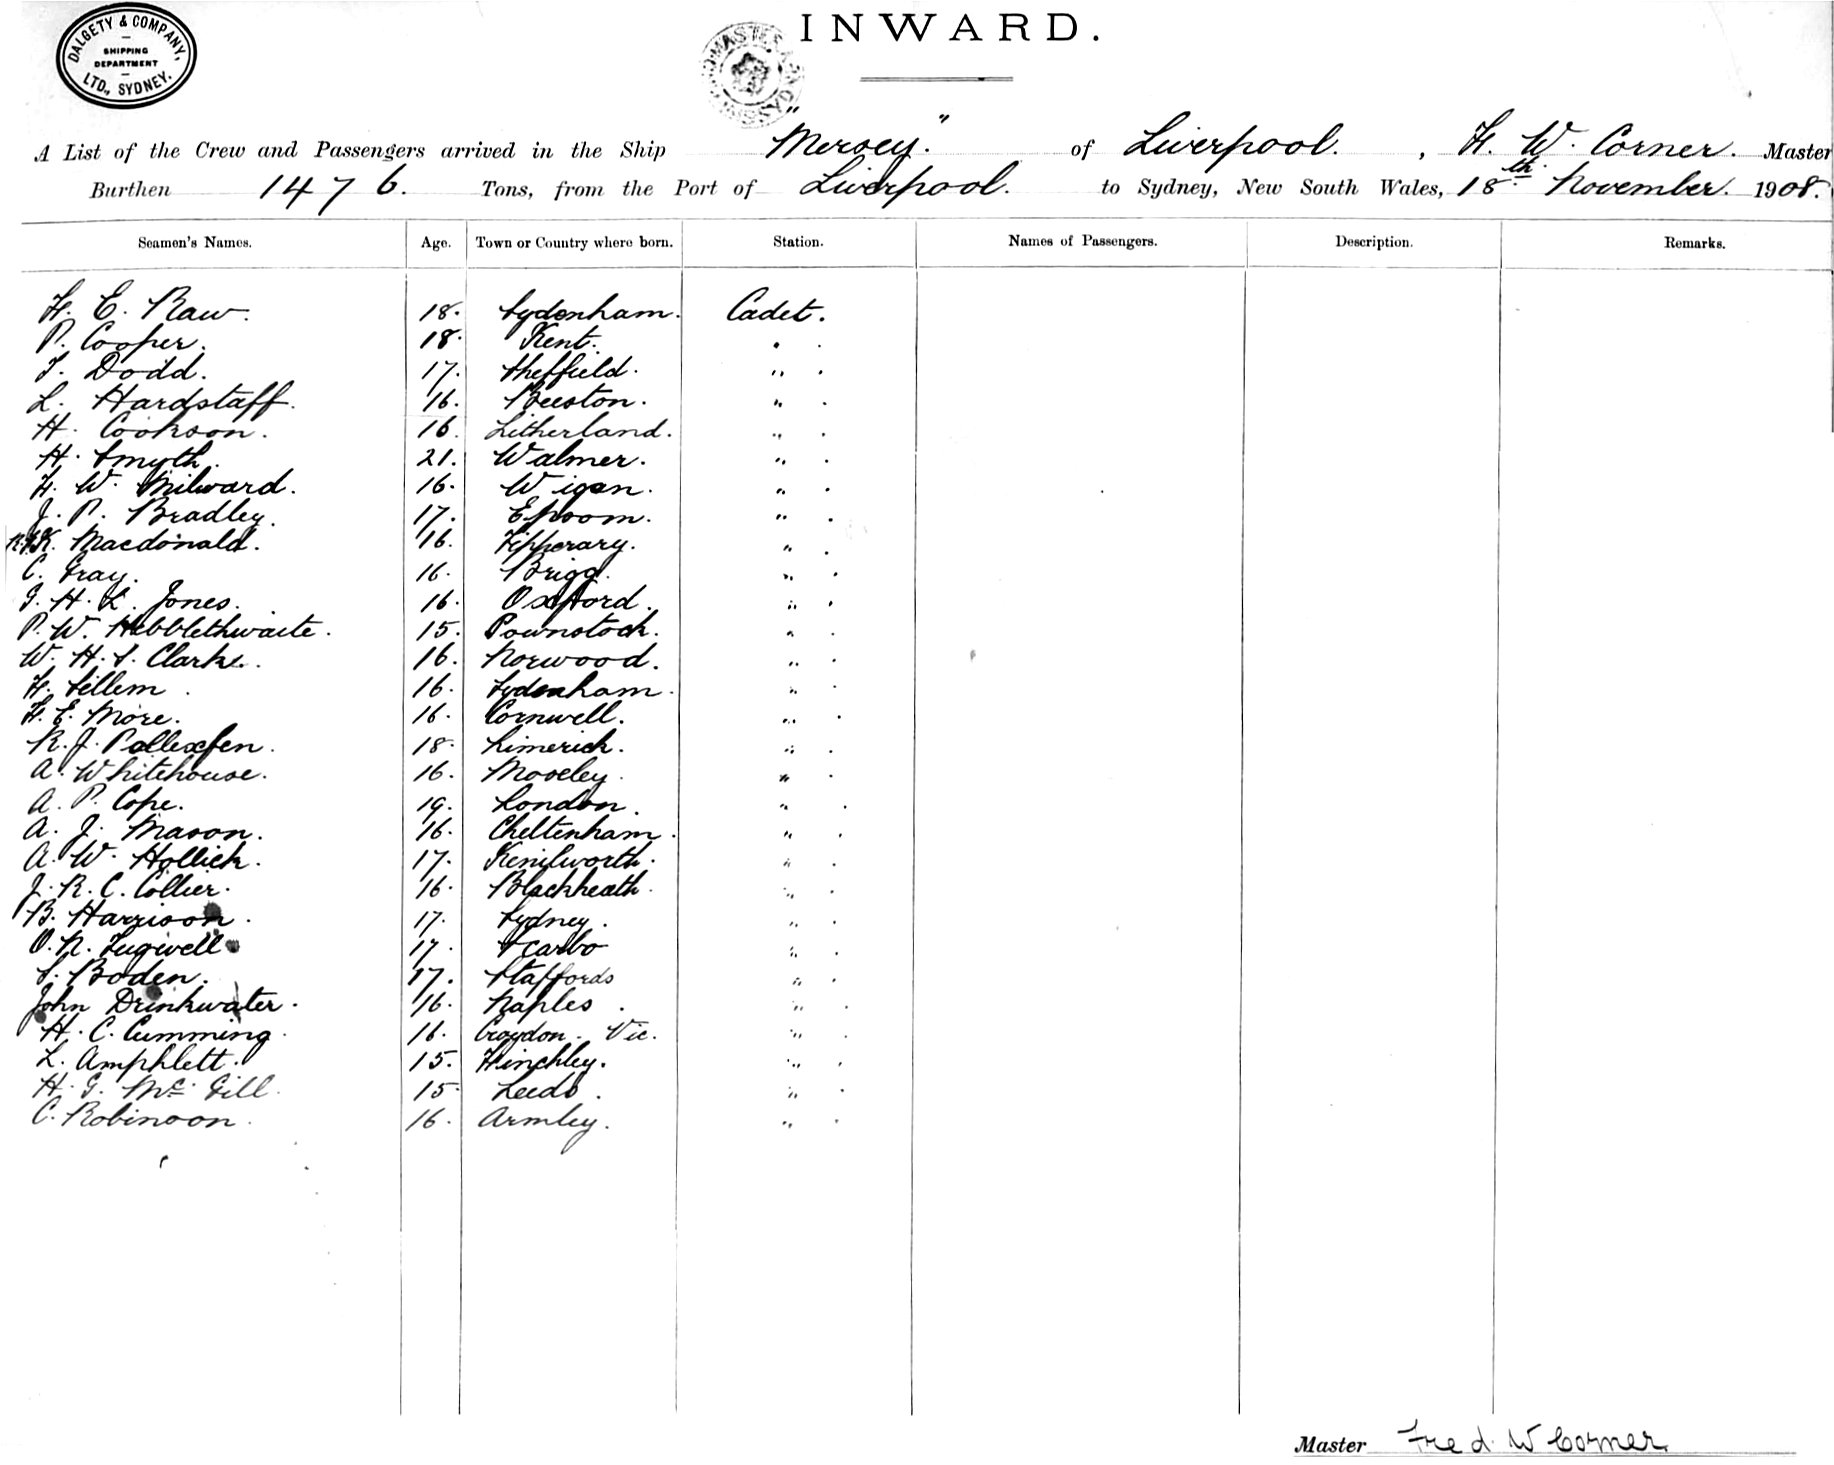 DALGETY & COMPANY, LTD., SYDNEY.
SHIPPING
DEPARTMENT
INWARD.
A List of the Crew and Passengers arrived in the Ship "Mersey." of Liverpool. , F. W. Corner. Master
Burthen 1476. Tons, from the Port of Liverpool. to Sydney, New South Wales, 18th November. 1908.
Seamen's Names. Age. Town or Country where born. Station. Names of Passengers. Description. Remarks.
F. E. Raw. 18. Sydenham. Cadet.
P. Cooper. 18. Kent. " .
T. Dodd. 17. Sheffield. " .
L. Hardstaff. 16. Beeston. " .
H. Cookson. 16. Litherland. " .
H. Smyth. 21. Walmer. " .
F. W. Milward. 16. Wigan. " .
J. P. Bradley. 17. Epsom. " .
Macdonald. 16. Tipperary. " .
C. Gray. 16. Brigg. " .
G. H. L. Jones. 16. Oxford. " .
P. W. Hebblethwaite. 15. Pownstock. " .
W. H. S. Clarke. 16. Norwood. " .
F. Sillem. 16. Sydenham. " .
F. E. More. 16. Cornwell. " .
R. J. Pollexfen. 18. Limerick. " .
A. Whitehouse. 16. Moseley. " .
A. P. Cope. 19. London. " .
A. J. Mason. 16. Cheltenham. " .
A. W. Hollick. 17. Kenilworth. " .
J. R. C. Collier. 16. Blackheath. " .
B. Harrison. 17. Sydney. " .
O. N. Tugwell 17. " .
S. Boden. 17. Staffords " .
John Drinkwater. 16. Naples. " .
H. C. Cumming. 16. Croydon. Vic. " .
L. Amphlett. 15. Hinchley. " .
H. G. McGill. 15 Leeds. " .
C. Robinson. 16. Armley. " .
Master Fred. W Corner